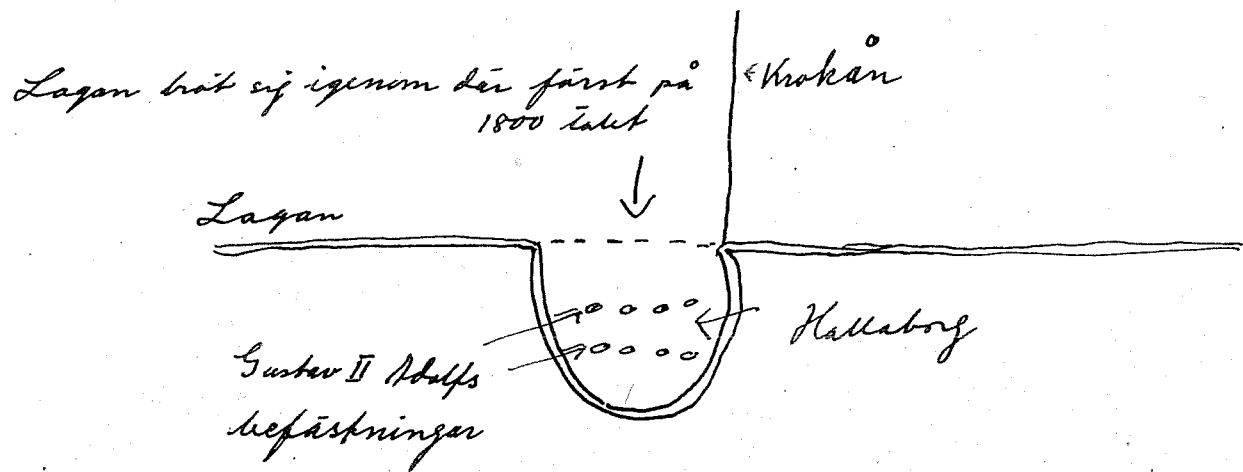 Lagan bröt sig igenom där först på
1800 talet
Krokån
Lagan
Hallaborg
Gustav II Adolfs
befästningar